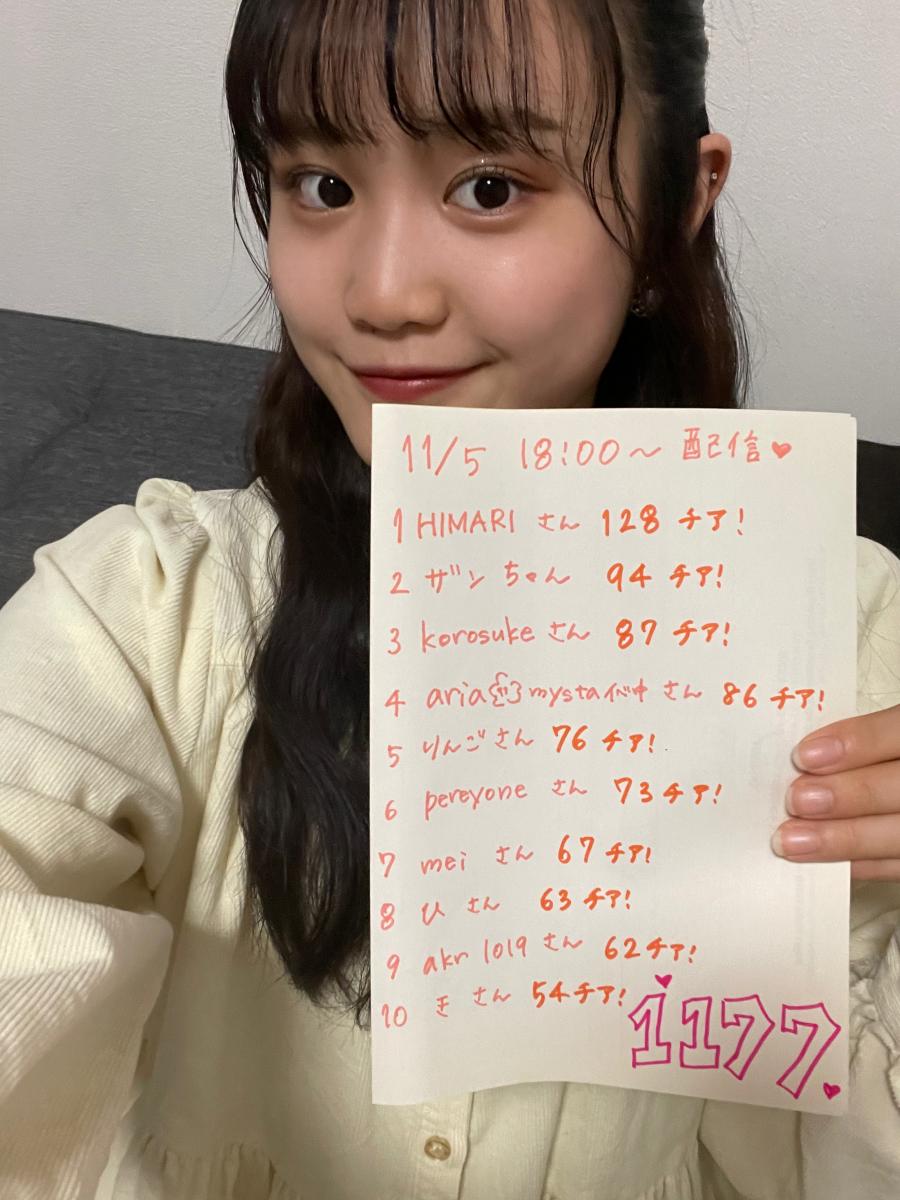 11/5 18:00～ 配信♥
1 HIMARI さん 128 チア!
2 ザンちゃん 94 チア!
3 korosuke さん 87 チア!
4 aria mystaイベ中 さん 86 チア!
5 りんごさん 76 チア!
6 pereyone さん 73 チア!
7 mei さん 67 チア!
8 ひ さん 63 チア!
9 akr 1019 さん 62 チア!
10 さん 54 チア!
1177